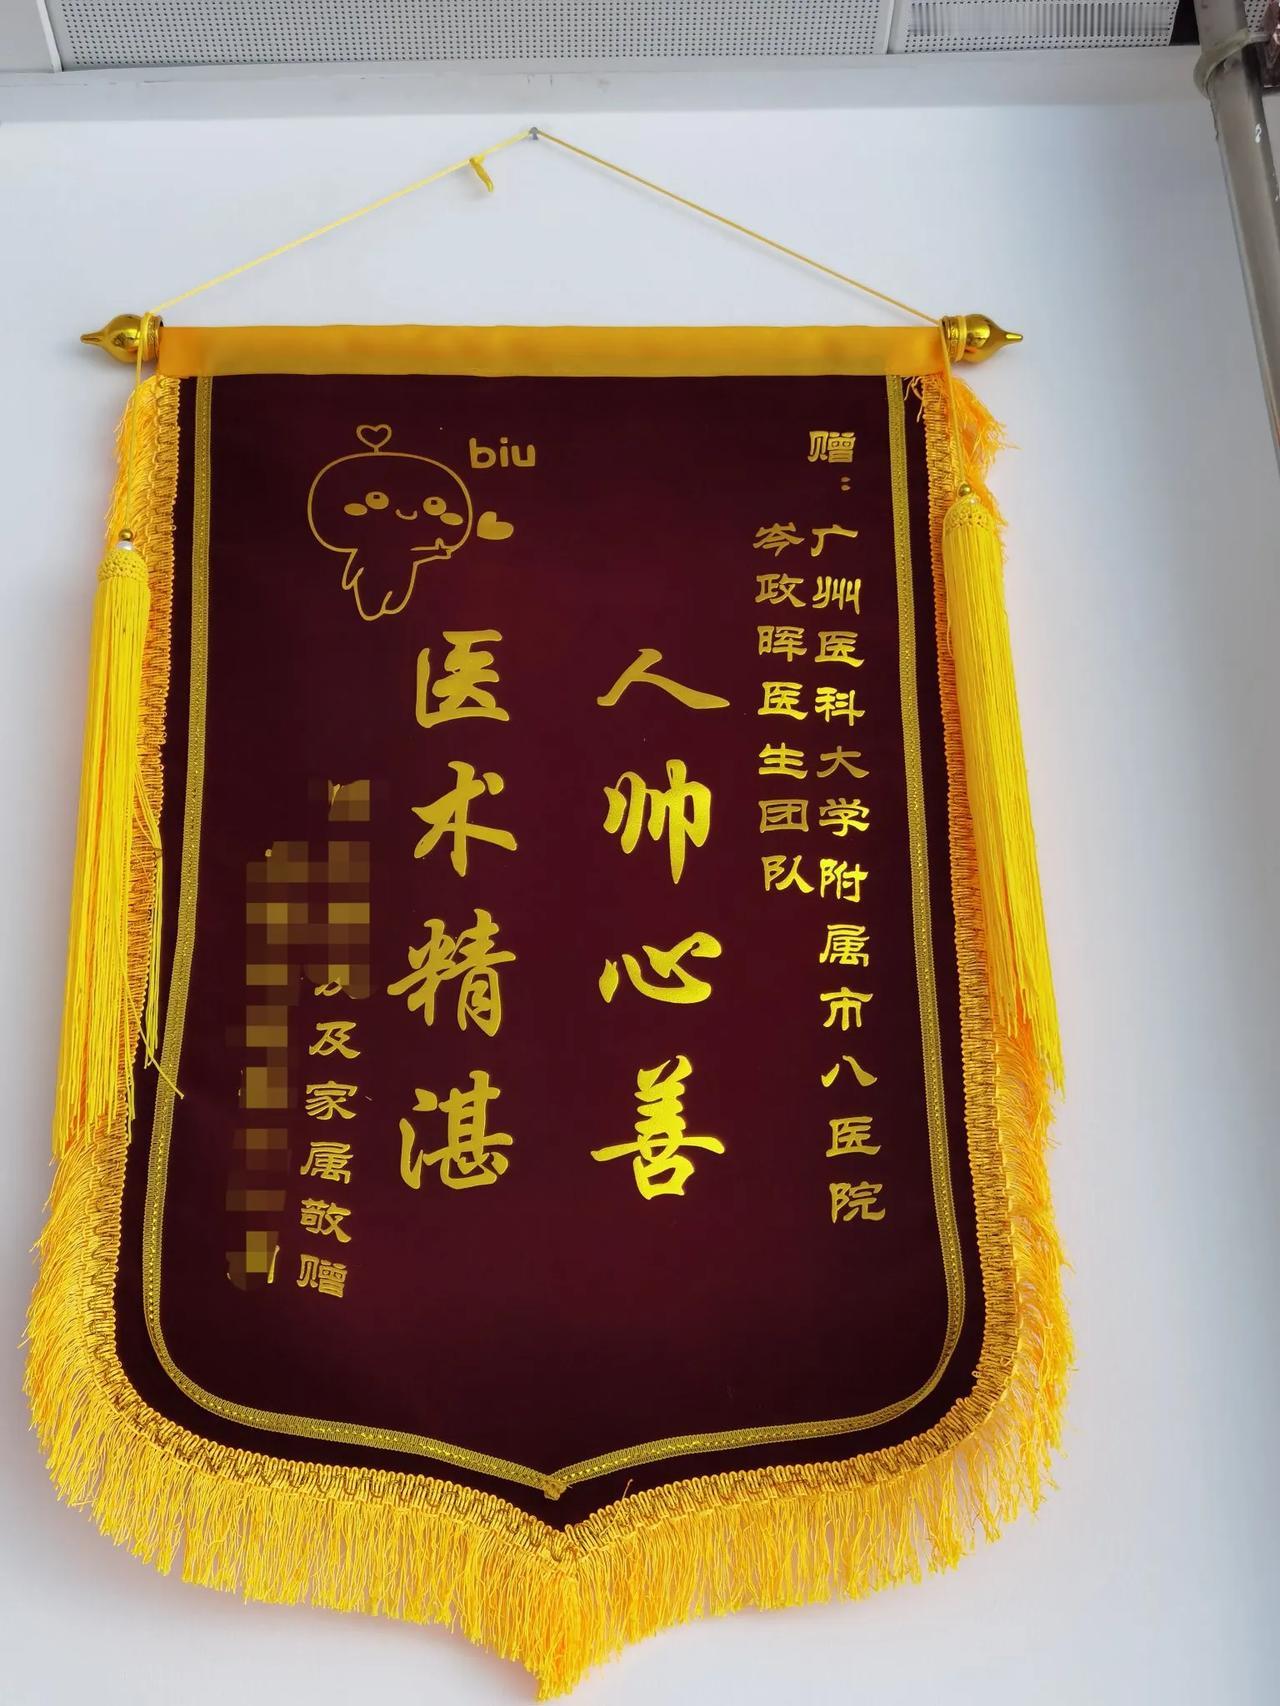 赠：广州医科大学附属市八医院
岑政晖医生团队
人帅心善
医术精湛
biu
及家属敬赠